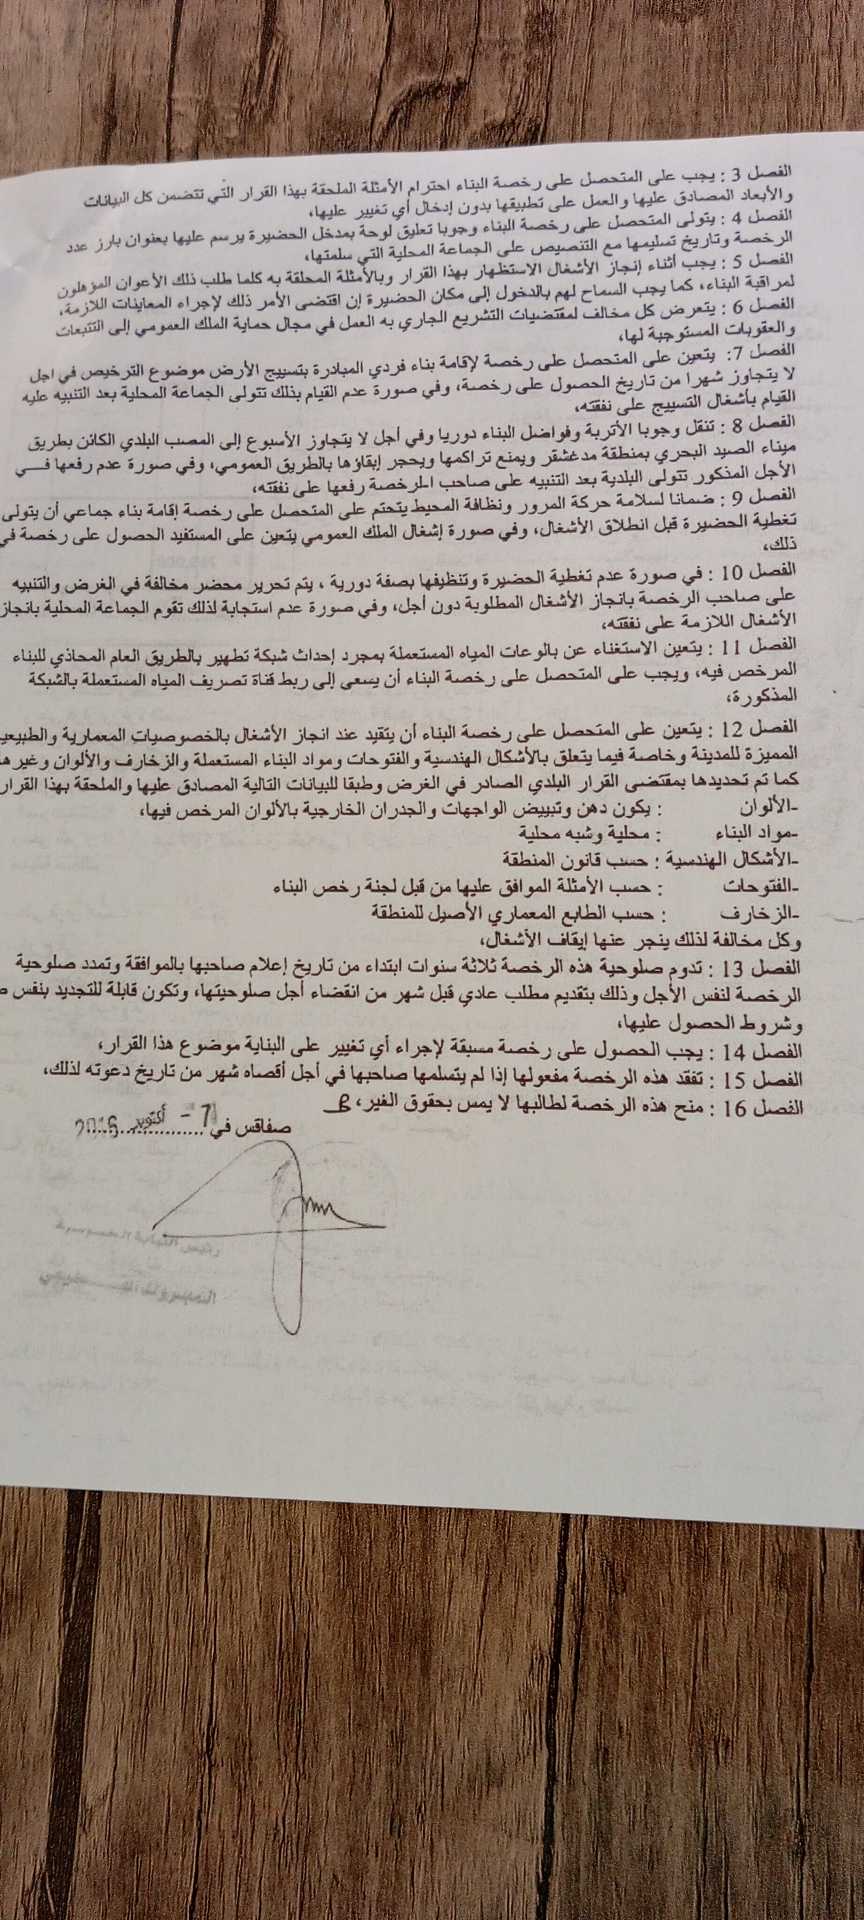 الفصل 3 : يجب على المتحصل على رخصة البناء احترام الأمثلة الملحقة بهذا القرار التي تتضمن كل البيانات
والأبعاد المصادق عليها والعمل على تطبيقها بدون إدخال أي تغيير عليها،
الفصل 4 : يتولى المتحصل على رخصة البناء وجوبا تعليق لوحة بمدخل الحضيرة يرسم عليها بعنوان بارز عدد
الرخصة وتاريخ تسليمها مع التنصيص على الجماعة المحلية التي سلمتها،
الفصل 5 : يجب أثناء إنجاز الأشغال الاستظهار بهذا القرار وبالأمثلة المحلقة به كلما طلب ذلك الأعوان المؤهلون
لمراقبة البناء، كما يجب السماح لهم بالدخول إلى مكان الحضيرة إن اقتضى الأمر ذلك لإجراء المعاينات اللازمة،
الفصل 6 : يتعرض كل مخالف لمقتضيات التشريع الجاري به العمل في مجال حماية الملك العمومي إلى التتبعات
والعقوبات المستوجبة لها،
الفصل 7: يتعين على المتحصل على رخصة لإقامة بناء فردي المبادرة بتسييج الأرض موضوع الترخيص في اجل
لا يتجاوز شهرا من تاريخ الحصول على رخصة، وفي صورة عدم القيام بذلك تتولى الجماعة المحلية بعد التنبيه عليه
القيام بأشغال التسييج على نفقته،
الفصل 8 : تنقل وجوبا الأتربة وفواضل البناء دوريا وفي أجل لا يتجاوز الأسبوع إلى المصب البلدي الكائن بطريق
ميناء الصيد البحري بمنطقة مدغشقر ويمنع تراكمها ويحجر إبقاؤها بالطريق العمومي، وفي صورة عدم رفعها فـــي
الأجل المذكور تتولى البلدية بعد التنبيه على صاحب الرخصة رفعها على نفقته،
الفصل 9 : ضمانا لسلامة حركة المرور ونظافة المحيط يتحتم على المتحصل على رخصة إقامة بناء جماعي أن يتولى
تغطية الحضيرة قبل انطلاق الأشغال، وفي صورة إشغال الملك العمومي يتعين على المستفيد الحصول على رخصة في
ذلك،
الفصل 10 : في صورة عدم تغطية الحضيرة وتنظيفها بصفة دورية ، يتم تحرير محضر مخالفة في الغرض والتنبيه
على صاحب الرخصة بانجاز الأشغال المطلوبة دون أجل، وفي صورة عدم استجابة لذلك تقوم الجماعة المحلية بانجاز
الأشغال اللازمة على نفقته،
الفصل 11 : يتعين الاستغناء عن بالوعات المياه المستعملة بمجرد إحداث شبكة تطهير بالطريق العام المحاذي للبناء
المرخص فيه، ويجب على المتحصل على رخصة البناء أن يسعى إلى ربط قناة تصريف المياه المستعملة بالشبكة
المذكورة،
الفصل 12 : يتعين على المتحصل على رخصة البناء أن يتقيد عند انجاز الأشغال بالخصوصيات المعمارية والطبيعي
المميزة للمدينة وخاصة فيما يتعلق بالأشكال الهندسية والفتوحات ومواد البناء المستعملة والزخارف والألوان وغيرها
كما تم تحديدها بمقتضى القرار البلدي الصادر في الغرض وطبقا للبيانات التالية المصادق عليها والملحقة بهذا القرار
-الألوان : يكون دهن وتبييض الواجهات والجدران الخارجية بالألوان المرخص فيها،
-مواد البناء : محلية وشبه محلية
-الأشكال الهندسية : حسب قانون المنطقة
-الفتوحات : حسب الأمثلة الموافق عليها من قبل لجنة رخص البناء
-الزخارف : حسب الطابع المعماري الأصيل للمنطقة
وكل مخالفة لذلك ينجر عنها إيقاف الأشغال،
الفصل 13 : تدوم صلوحية هذه الرخصة ثلاثة سنوات ابتداء من تاريخ إعلام صاحبها بالموافقة وتمدد صلوحية
الرخصة لنفس الأجل وذلك بتقديم مطلب عادي قبل شهر من انقضاء أجل صلوحيتها، وتكون قابلة للتجديد بنفس
وشروط الحصول عليها،
الفصل 14 : يجب الحصول على رخصة مسبقة لإجراء أي تغيير على البناية موضوع هذا القرار،
الفصل 15 : تفقد هذه الرخصة مفعولها إذا لم يتسلمها صاحبها في أجل أقصاه شهر من تاريخ دعوته لذلك،
الفصل 16 : منح هذه الرخصة لطالبها لا يمس بحقوق الغير،
صفاقس في 7 - أكتوبر